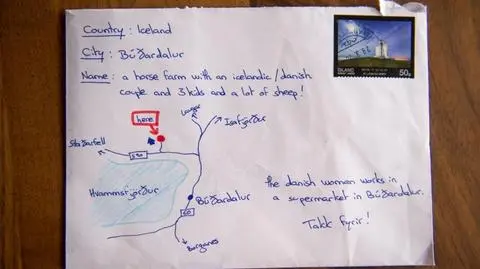 Country : Iceland
City : Búðardalur
Name : a horse farm with an icelandic/danish
couple and 3 kids and a lot of sheep!
here
Laugar
Ísafjörður
Staðarfell
590
Hvammsfjörður
Búðardalur
60
Borganes
the danish women works in
a supermarket in Búðardalur.
Takk fyrir!
ÍSLAND
50g